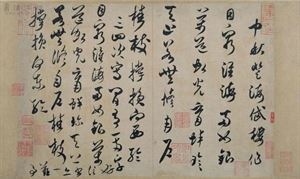 中秋登海岱樓作
目窮淮海兩如銀
萬道虹光育蚌珍
天上若無修月戶
桂枝撐損向西輪
三四次寫間有一兩字
目窮淮海兩如銀萬
道虹光育蚌珍天上
若無修月戶桂枝
撐損向東輪